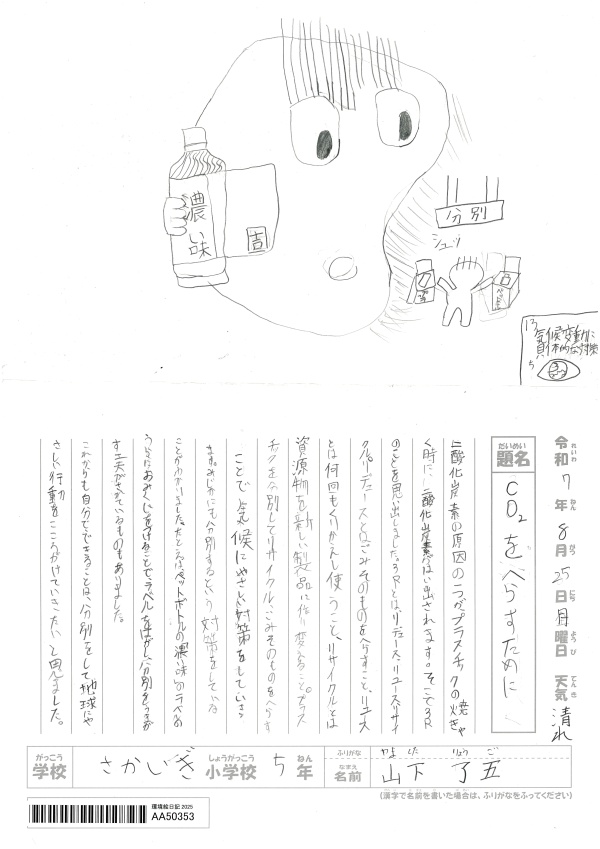 濃い味
吉
分別
シュッ!
13
気候変動に
具体的な対策
令和7年8月25日月曜日 天気 晴れ
れいわ ねん がつ にち ようび てんき
だいめい
題名
CO₂をへらすために
二酸化炭素の原因の一つがプラスチックの焼きゃ
く時に、二酸化炭素がはい出されます。そこで3R
のことを思い出しました。3Rとは、リデュース、リユース、リサイ
クル。リデュースとはごみそのものをへらすこと、リユース
とは何回もくりかえし使うこと、リサイクルとは
資源物を新しい製品に作り変えること。プラス
チックを分別してリサイクル、ごみそのものをへらす
ことで気候にやさしい対策をしている
ます。みじかにも分別するという対策をしている
ことがわかりました。たとえば、ペットボトルの濃い味のラベルの
うらにはおみくじをつけることで、ラベルをはがし、分別をうながす
す工夫がされているものもありました。
これからも自分でできることは、分別をして地球にや
さしい行動をこころがけていきたいと思いました。
がっこう しょうがっこう ねん
学校 さかいぎ 小学校 5年
ふりがな やました りょうご
なまえ
名前 山下 了五
(漢字で名前を書いた場合は、ふりがなをふってください)
環境絵日記 2025
AA50353